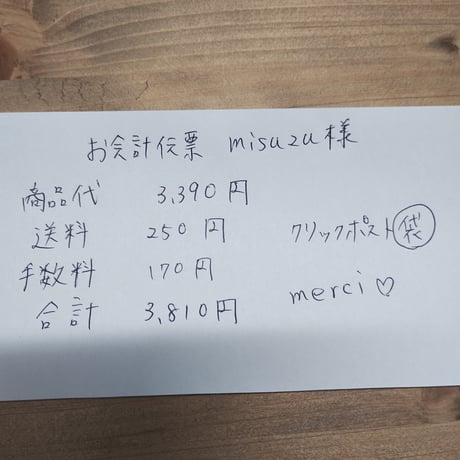 お会計伝票 misuzu様
商品代 3,390円
送料 250円 クリックポスト 袋
手数料 170円
merci♡
合計 3,810円